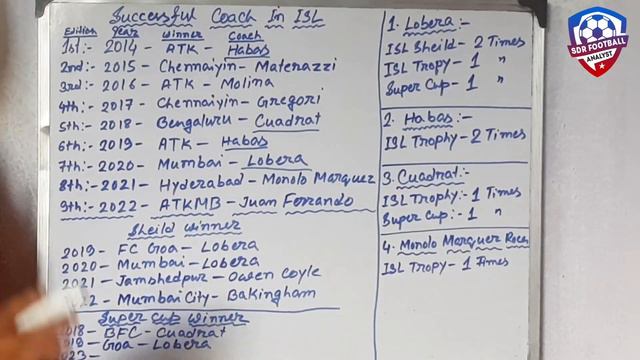 Successful Coach In ISL
Edition Year Winner Coach
1st:- 2014 - ATK - Habas
2nd:- 2015 - Chennaiyin - Materazzi
3rd:- 2016 - ATK - Molina
4th:- 2017 - Chennaiyin - Gregori
5th:- 2018 - Bengaluru - Cuadrat
6th:- 2019 - ATK - Habas
7th:- 2020 - Mumbai - Lobera
8th:- 2021 - Hyderabad - Monolo Marquez
9th:- 2022 - ATKMB - Juan Ferrando
Sheild Winner
2019 - FC Goa - Lobera
2020 - Mumbai - Lobera
2021 - Jamshedpur - Owen Coyle
22 - Mumbai City - Bakingham
Super Cup Winner
2018 - BFC - Cuadrat
2019 - Goa - Lobera
2023 -
1. Lobera:-
ISL Sheild - 2 Times
ISL Tropy - 1 "
Super Cup - 1 "
2. Habas:-
ISL Trophy - 2 Times
3. Cuadrat:-
ISL Trophy:- 1 Times
Super Cup:- 1 "
4. Monolo Marquez Roca
ISL Tropy - 1 Times
SDR FOOTBALL
ANALYST